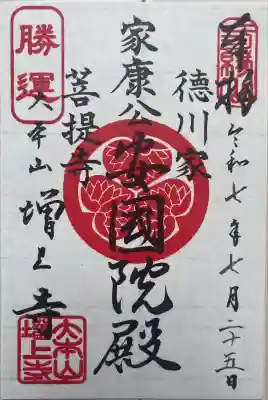 奉拝
令和七年七月二十五日
徳川家
家康公
菩提寺
安國院殿
勝運
大本山
増上寺
大本山
増上寺